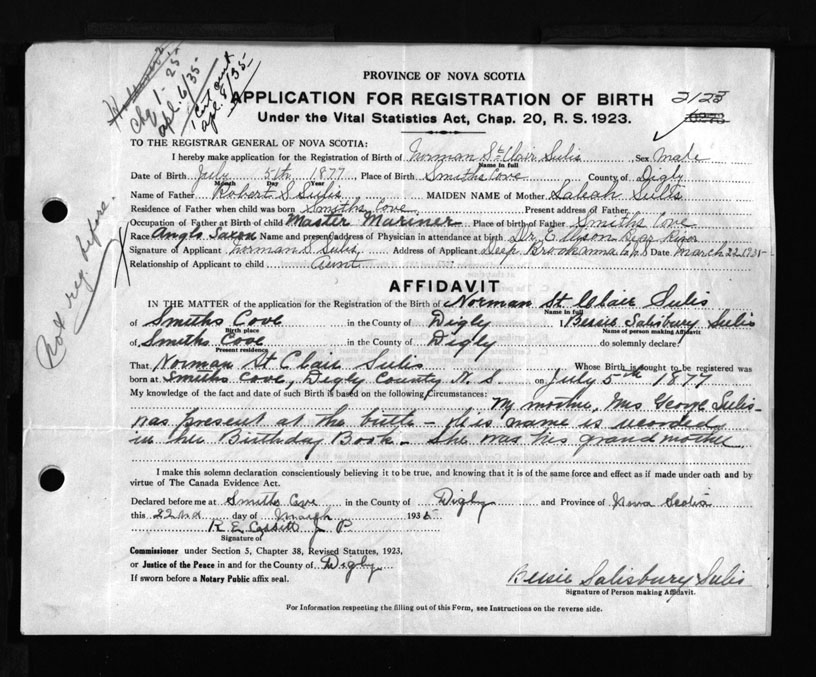 Chq 1.25
apl. 6/35
1 Cert sent
apl. 8/35
PROVINCE OF NOVA SCOTIA
APPLICATION FOR REGISTRATION OF BIRTH
2123
Under the Vital Statistics Act, Chap. 20, R. S. 1923.
TO THE REGISTRAR GENERAL OF NOVA SCOTIA:
I hereby make application for the Registration of Birth of Norman St Clair Sulis Sex Male
Name in full
Date of Birth July 5th 1877 Place of Birth Smiths Cove County of Digby
Month Day Year
Name of Father Robert S Sulis MAIDEN NAME of Mother Sulis
Residence of Father when child was born Smiths Cove Present address of Father
Occupation of Father at Birth of child Master Mariner Place of birth of Father Smiths Cove
Race Anglo Saxon Name and present address of Physician in attendance at birth Dr. Bear River
Signature of Applicant Norman S Sulis Address of Applicant Deep Brook Anna Co N S Date March 22 1935
Relationship of Applicant to child Aunt
Not reg before.
AFFIDAVIT
IN THE MATTER of the application for the Registration of the Birth of Norman St Clair Sulis
Name in full
of Smiths Cove in the County of Digby I, Bessie Salisbury Sulis
Birth place Name of person making Affidavit
of Smiths Cove in the County of Digby do solemnly declare:
Present residence
That Norman St Clair Sulis Whose Birth is sought to be registered was
born at Smiths Cove, Digby County N. S. on July 5th 1877
My knowledge of the fact and date of such Birth is based on the following Circumstances: My mother, Mrs George Sulis-
was present at the birth - His name is recorded
in her Birthday Book - She was his grandmother
I make this solemn declaration conscientiously believing it to be true, and knowing that it is of the same force and effect as if made under oath and by
virtue of The Canada Evidence Act.
Declared before me at Smiths Cove in the County of Digby and Province of Nova Scotia
this 22nd day of March 1935
R E Cossitt J P
Signature of
Commissioner under Section 5, Chapter 38, Revised Statutes, 1923,
or Justice of the Peace in and for the County of Digby
If sworn before a Notary Public affix seal.
Bessie Salisbury Sulis
Signature of Person making Affidavit.
For Information respecting the filling out of this Form, see Instructions on the reverse side.